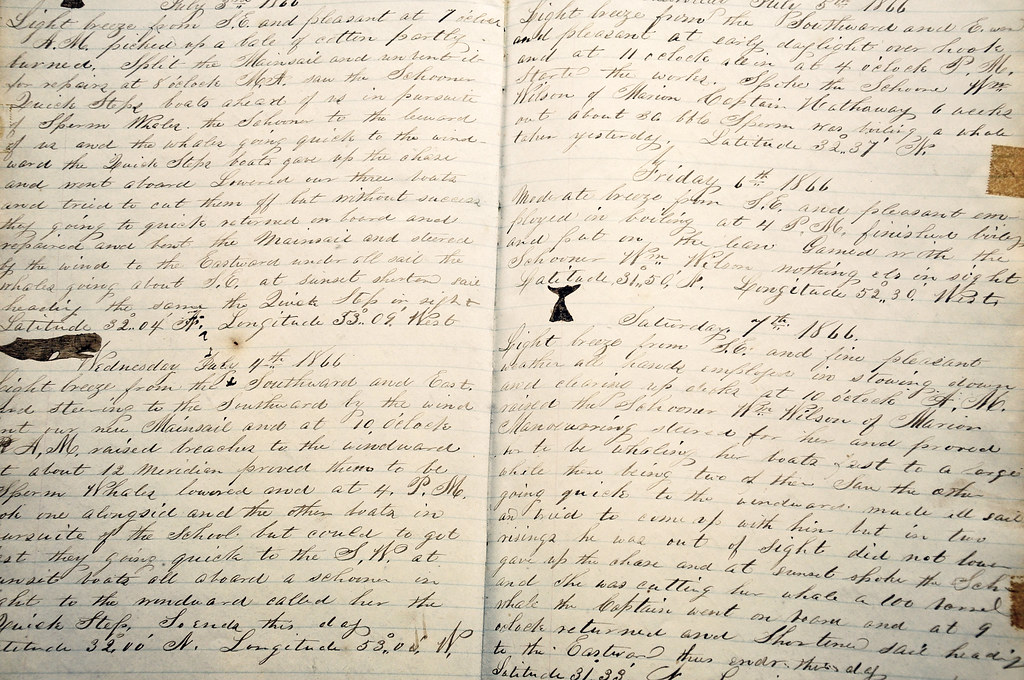 July 3rd 1866
Light breeze from S.E. and pleasant at 7 oclock
A.M. picked up a bale of cotton partly
burned, Split the Mainsail and unbent it
for repairs at 8 oclock A.M. saw the Schooner
Quick Steps boats ahead of us in pursuite
of Sperm Whales. the Schooner to the leward
of us and the whales going quick to the wind-
ward the Quick Steps boats gave up the chase
and went aboard Lowered our three boats
and tried to cut them off but without success
they going to quick returned on board and
repaired and bent the Mainsail and steered
by the wind to the Eastward under all sail the
whales going about S.E. at sunset shorten sail
heading the same the Quick Step in sight
Latitude 32°.04' N. Longitude 53°.09' West
Wednesday July 4th 1866
Light breeze from the Southward and East.
and steering to the Southward by the wind
nt our new Mainsail and at 10, Oclock
A,M, raised breaches to the windward
t about 12 Meridian proved them to be
Sperm Whales lowered and at 4. P.M.
ok one alongsid and the other boats in
ursuite of the School but could to get
st they going quick to the S.W. at
unset boats all aboard a schooner in
ght to the windward called her the
Quick Step, So ends this day
titude 32,00' N. Longitude 53.0 W.
July 5th 1866
Light breeze from the Southward and E.
and pleasant at early daylight over hook
and at 11 oclock all in at 4 oclock P.M.
started the works. Spoke the Schooner Wm
Wilson of Marion Captain Hathaway 6 weeks
out about 80 bbls Sperm was boiling a whale
taken yesterday. Latitude 32°.37' N.
Friday 6th 1866
Moderate breeze from S.E. and pleasant em-
ployed in boiling at 4 P.M. finished boiling
and put on the lean Gamed with the
Schooner Wm Wilson, nothing els in sight
Latitude 31°,50', N. Longitude 52°,30, West
Saturday, 7th 1866.
Light breeze from S.E. and fine pleasant
weather all hands employed in stowing down
and clearing up decks at 10 oclock A.M.
raised the Schooner Wm Wilson of Marion
Manouvuring steared for her and proved
her to be whaling her boats fast to a large
whale there being two of them Saw the other
going quick to the windward made all sail
an tried to come up with him but in two
risings he was out of sight did not lower
gave up the chase and at sunset spoke the Sch
and she was cutting her whale a 100 barrel
whale the Captain went on board and at 9
oclock returned and Shortened sail heading
to the Eastward thus ends this day
Latitude 31°.33' N.